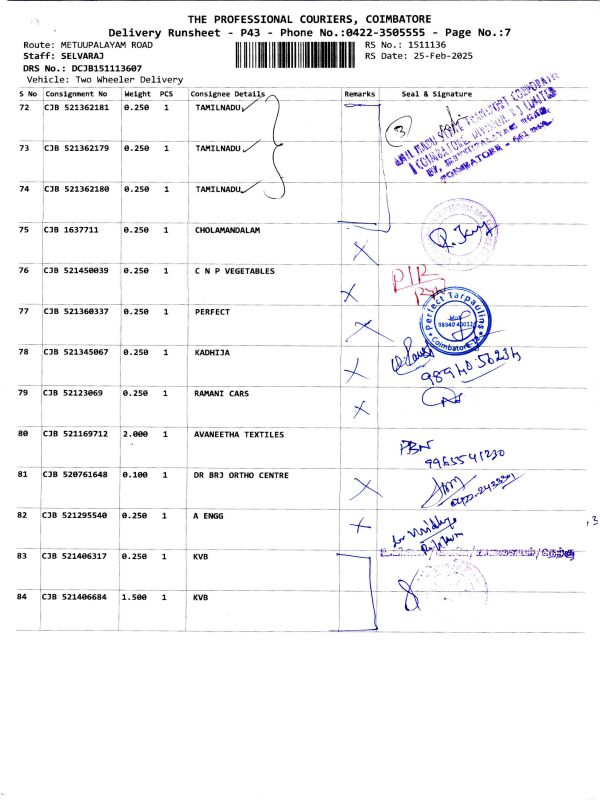 THE PROFESSIONAL COURIERS, COIMBATORE
Delivery Runsheet - P43 - Phone No.:0422-3505555 - Page No.:7
Route: METUUPALAYAM ROAD RS No.: 1511136
Staff: SELVARAJ RS Date: 25-Feb-2025
DRS No.: DCJB151113607
Vehicle: Two Wheeler Delivery
S No Consignment No Weight PCS Consignee Details Remarks Seal & Signature
72 CJB 521362181 0.250 1 TAMILNADU
3
73 CJB 521362179 0.250 1 TAMILNADU
74 CJB 521362180 0.250 1 TAMILNADU
75 CJB 1637711 0.250 1 CHOLAMANDALAM
76 CJB 521450039 0.250 1 C N P VEGETABLES
77 CJB 521360337 0.250 1 PERFECT
Perfect Tarpaulins
Coimbatore
78 CJB 521345067 0.250 1 KADHIJA
98940 50234
79 CJB 52123069 0.250 1 RAMANI CARS
80 CJB 521169712 2.000 1 AVANEETHA TEXTILES
PBN
9965541230
81 CJB 520761648 0.100 1 DR BRJ ORTHO CENTRE
82 CJB 521295540 0.250 1 A ENGG
83 CJB 521406317 0.250 1 KVB
84 CJB 521406684 1.500 1 KVB